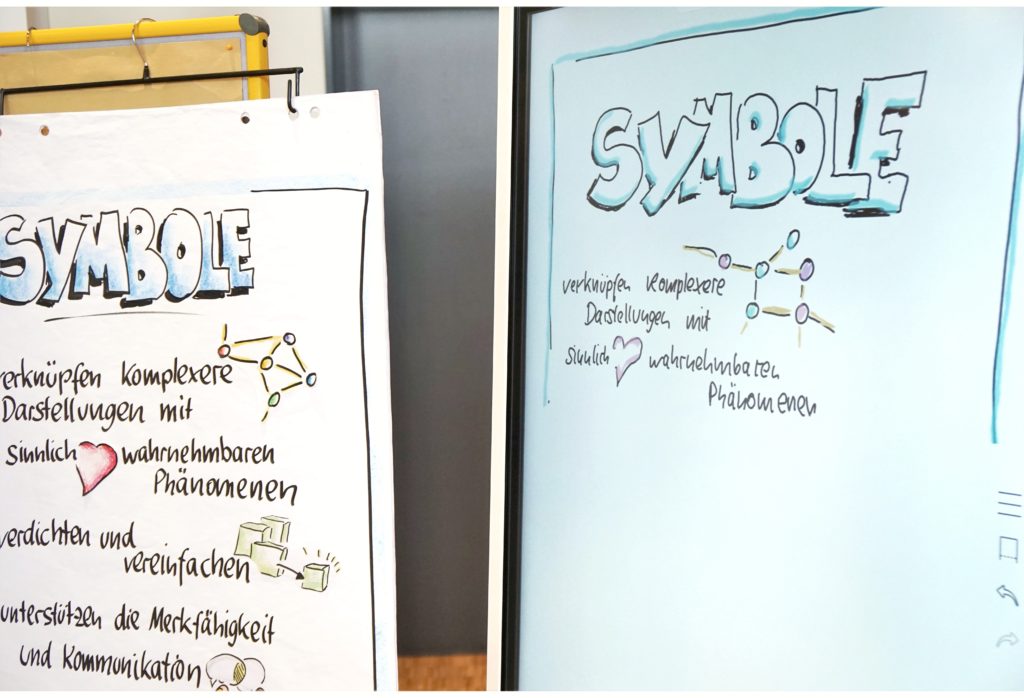 SYMBOLE
verknüpfen komplexere
Darstellungen mit
sinnlich wahrnehmbaren
Phänomenen
verdichten und
vereinfachen
unterstützen die Merkfähigkeit
und Kommunikation
SYMBOLE
verknüpfen komplexere
Darstellungen mit
sinnlich wahrnehmbaren
Phänomenen